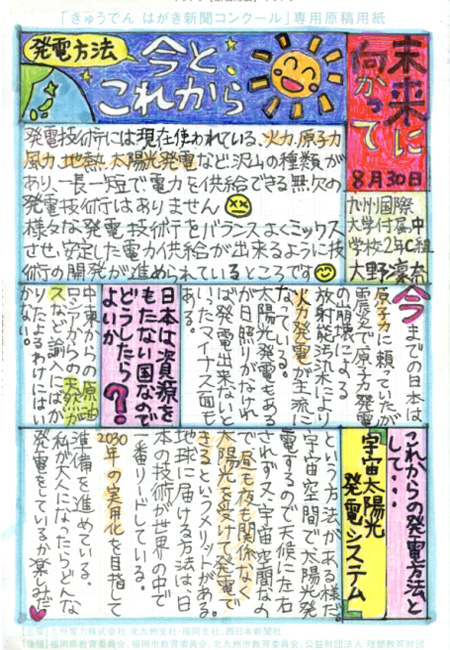 「きゅうでん はがき新聞コンクール」専用原稿用紙
未来に
向かって
8月30日
九州国際
大学付属中
学校2年C組
発電方法
今と
これから
発電技術には現在使われている、火力、原子力
風力、地熱、太陽光発電など沢山の種類が
あり、一長一短で電力を供給できる無欠の
発電技術はありません
様々な発電技術をバランスよくミックス
させ、安定した電力供給が出来るように技
術の開発が進められているところです
今までの日本は、
原子力に頼っていたが
震災で原子力発電
の崩壊による
放射能汚染により
火力発電が主流に
なっている。
太陽光発電もある
が日照りがなけれ
ば発電出来ないと
いったマイナス面も
ある。
日本は資源を
もたない国なので
どうしたら
よいか?
中東からの原油
ロシアからの天然ガ
スなど諭入にばか
りたよるわけにはい
かない。
これからの発電方法と
して・・・
宇宙太陽光
発電システム
という方法がある様だ。
宇宙空間で太陽光発
電するので天候に左右
されず、又、宇宙空間なの
で昼も夜も関係なく
太陽光を受けて発電で
きるというメリットがある。
地球に届ける方法は、日
本の技術が世界の中で
一番リードしている。
2030年の実用化を目指して
準備を進めている。
私が大人になったらどんな
発電をしているか楽しみだ
【主催】九州電力株式会社 北九州支社・福岡支社、西日本新聞社
【後援】福岡県教育委員会、福岡市教育委員会、北九州市教育委員会、公益財団法人 理想教育財団